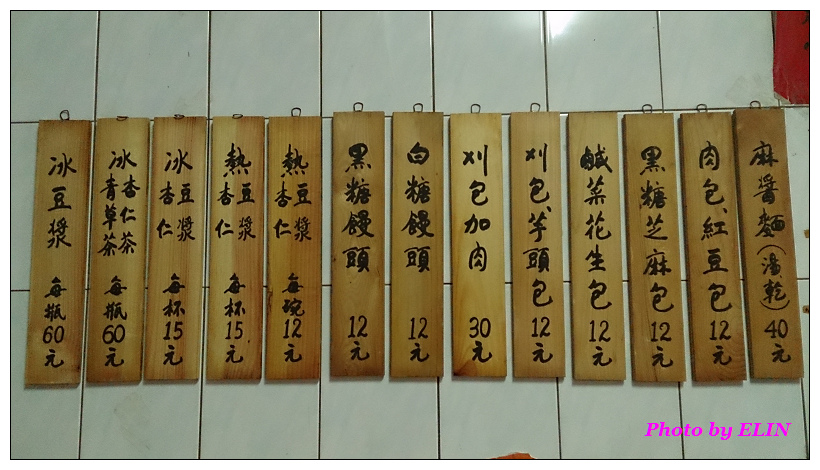 麻醬麵(湯乾)40元
肉包、紅豆包12元
黑糖芝麻包12元
鹹菜花生包12元
刈包、芋頭包12元
刈包加肉30元
白糖饅頭12元
黑糖饅頭12元
熱豆漿杏仁每碗12元
熱豆漿杏仁每杯15元
冰豆漿杏仁每杯15元
冰杏仁茶青草茶每瓶60元
冰豆漿每瓶60元
Photo by ELIN